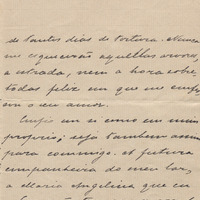 de tantos dias de tortura. Nunca
me esquecerão aquellas arvores,
a estrada, nem a hora sobre
todas feliz em que me
o seu amor.
em si como em mim
proprio; seja tambem assim
para commigo. A futura
companheira do meu lar,
a Maria Angelina que eu